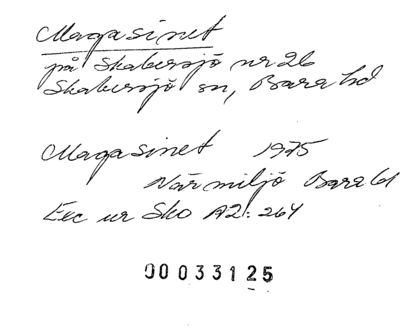 Magasinet
på Skabersjö nr 26
Skabersjö sn, Bara hd
Magasinet 1975
Närmiljö Bara
Exc ur Sko A2: 264
00033125